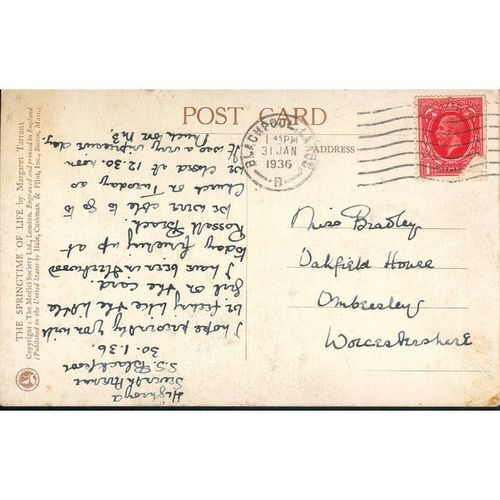 THE SPRINGTIME OF LIFE by Margaret Tarrant
Copyright: The Medici Society Ltd., London. Engraved and printed in England
(Published in the United States by Hale, Cushman & Flint, Inc., Boston, Mass.)
POST CARD
ADDRESS
BLACKPOOL. LANCS
1 45 PM
31 JAN
1936
B
Highroyd
Seventh Avenue
S.S. Blackpool
30.1.36.
I hope presently you will
be feeling like the little
girl on the card.
I have been in
today finishing up at
Rossall Beach.
be able to go to
Church on Tuesday as
we closed at 12.30. noon
It was a very impressive day.
Much love
Miss Bradley
Oakfield House
Ombersley
Worcestershire